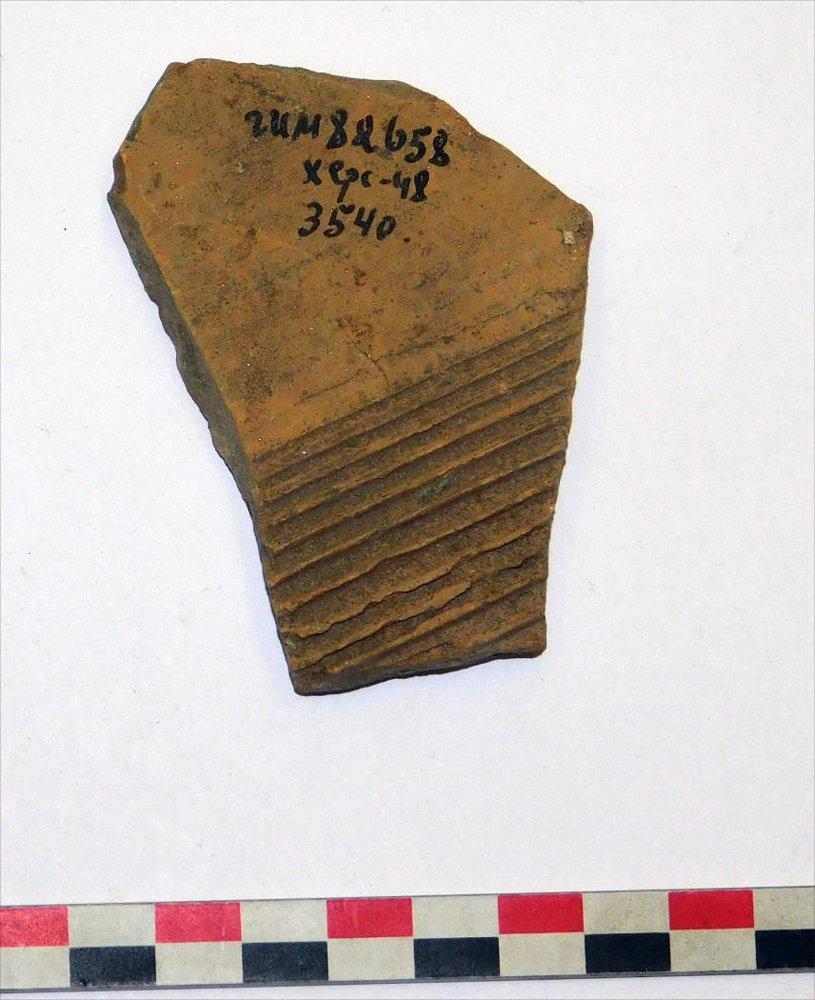 гим 82658
херс-48
3540.